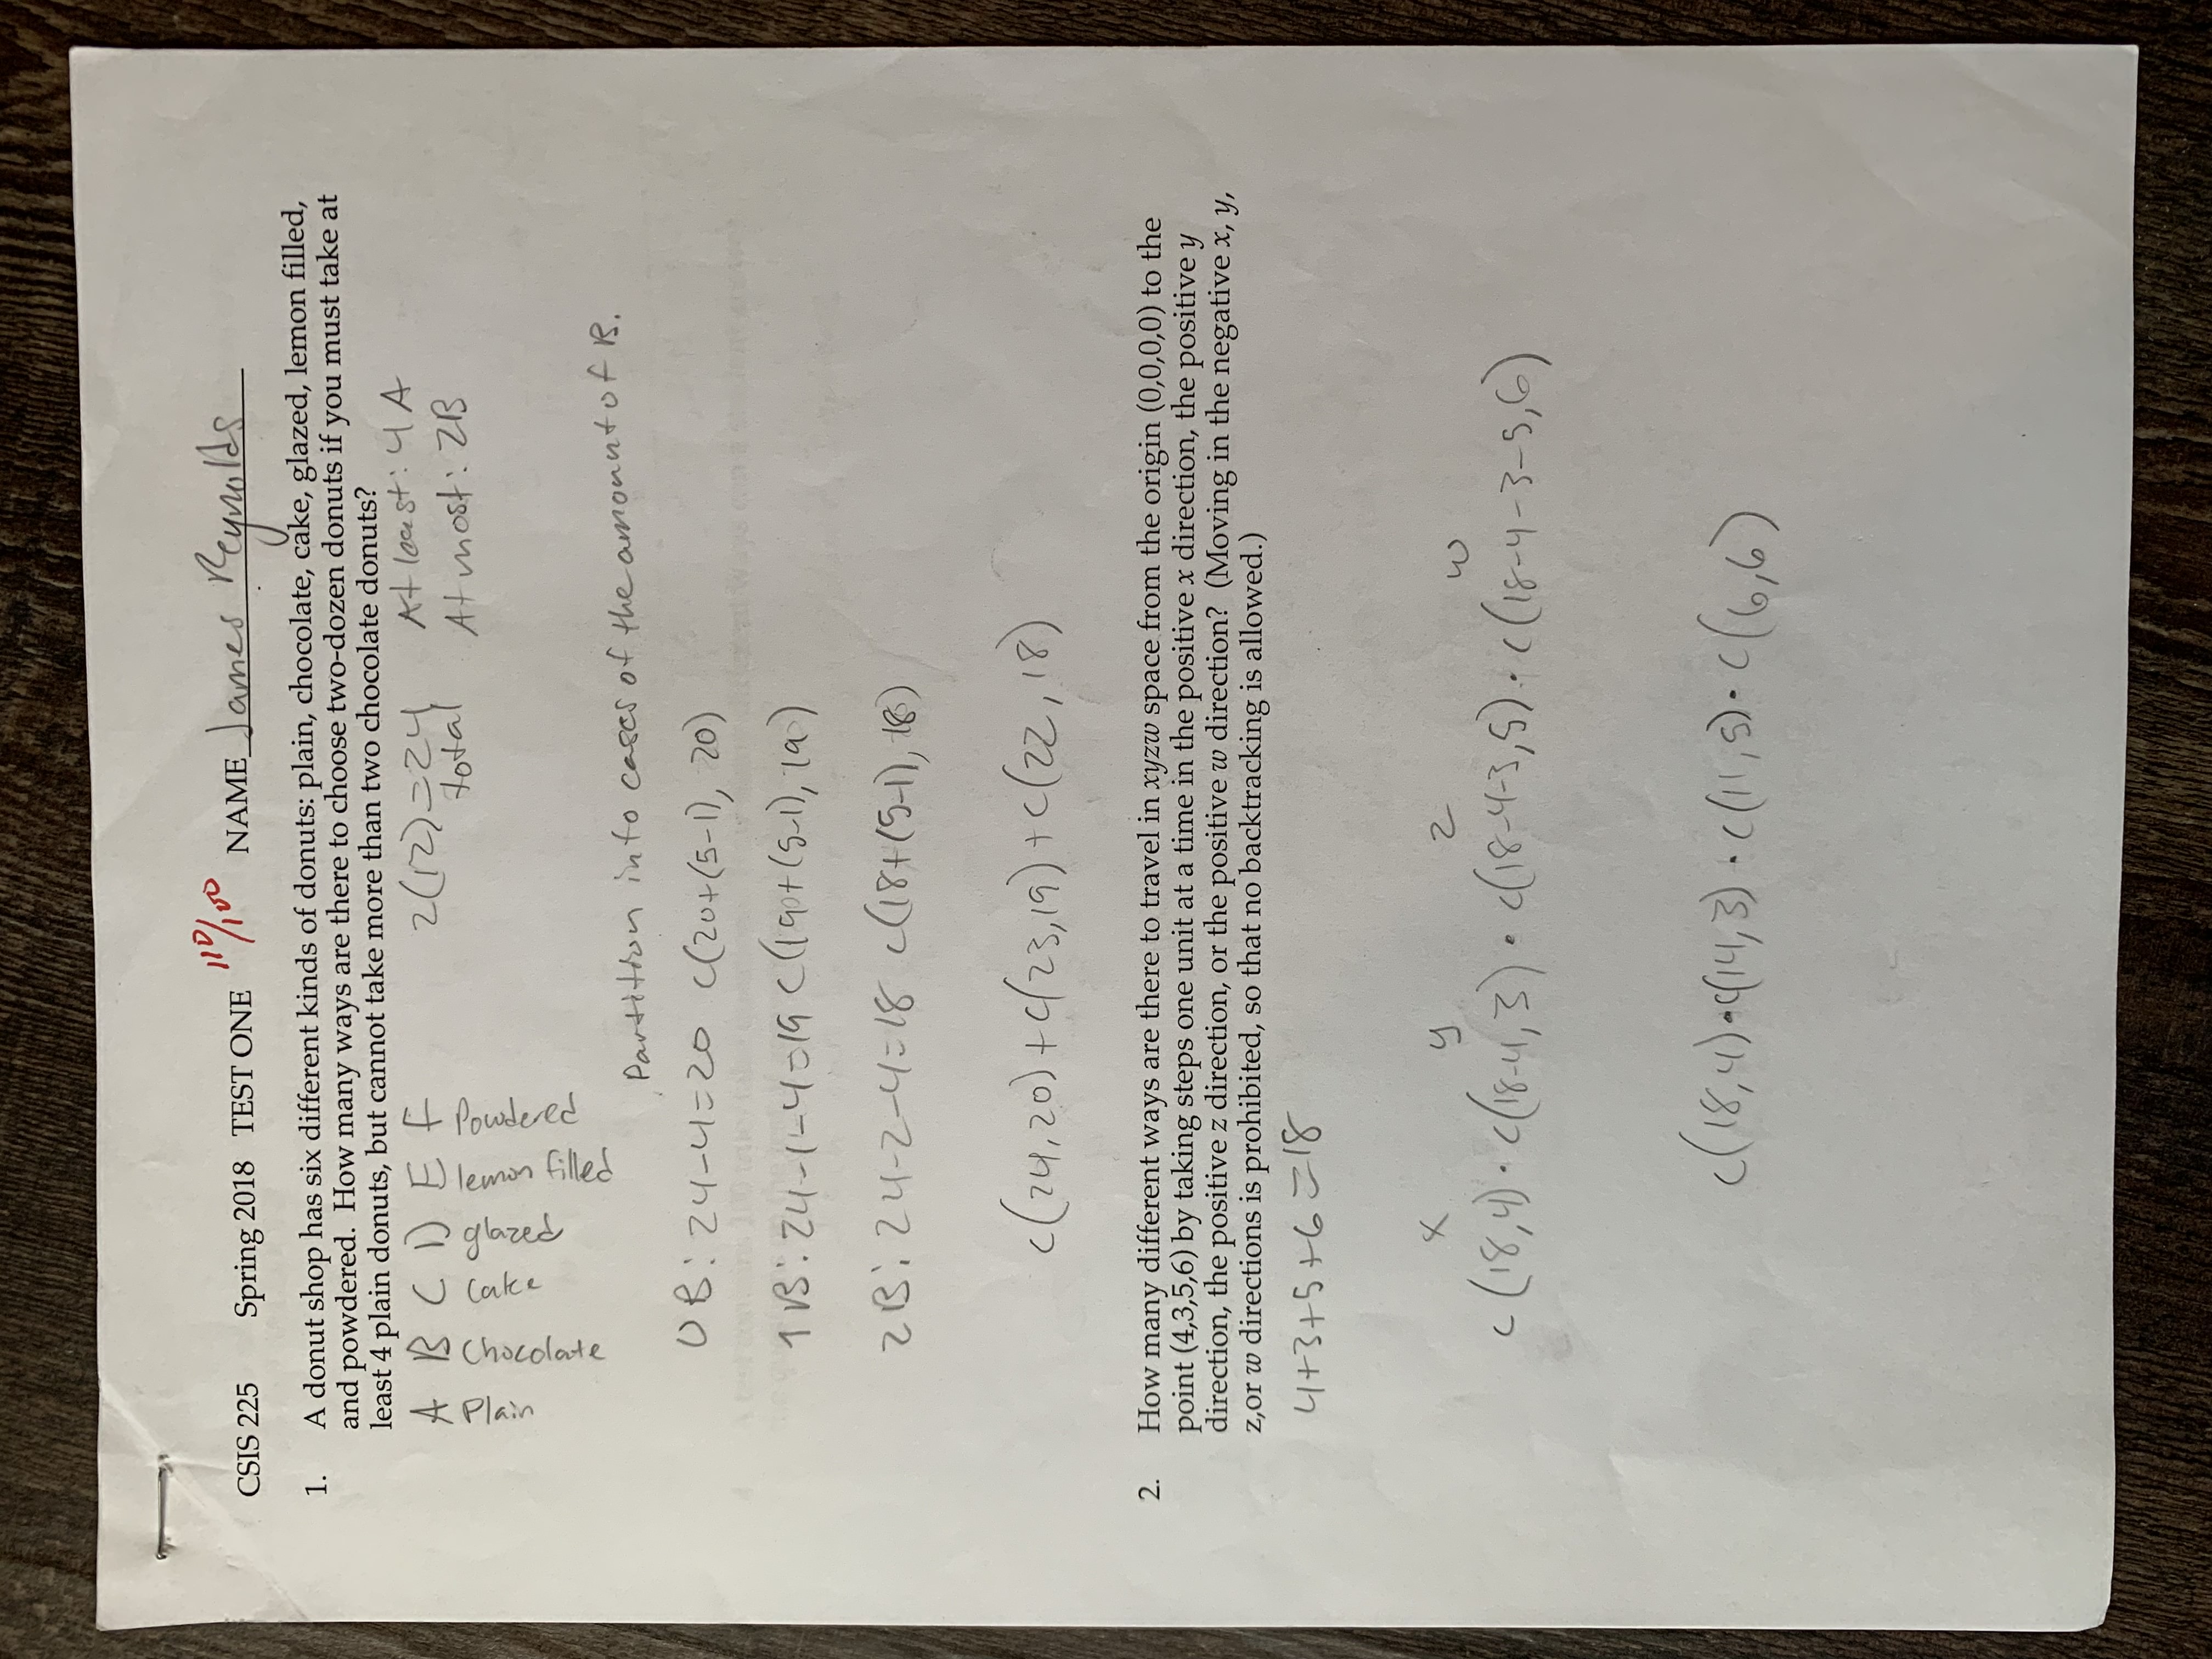 CSIS 225 Spring 2018 TEST ONE 110/100 NAME James Reynolds
1. A donut shop has six different kinds of donuts: plain, chocolate, cake, glazed, lemon filled,
and powdered. How many ways are there to choose two-dozen donuts if you must take at
least 4 plain donuts, but cannot take more than two chocolate donuts?
A B C D E F
Plain
Chocolate
Cake
glazed
lemon filled
Powdered
2(12)=24
total
At least: 4A
At most: 2B
Partition into cases of the amount of B.
0B: 24-4=20 C(20+(5-1), 20)
1B: 24-1-4=19 C(19+(5-1), 19)
2B: 24-2-4=18 C(18+(5-1), 18)
C(24,20)+C(23,19)+C(22,18)
2. How many different ways are there to travel in xyzw space from the origin (0,0,0,0) to the
point (4,3,5,6) by taking steps one unit at a time in the positive x direction, the positive y
direction, the positive z direction, or the positive w direction? (Moving in the negative x, y,
z,or w directions is prohibited, so that no backtracking is allowed.)
4+3+5+6=18
x y z w
C(18,4)·C(18-4,3)·C(18-4-3,5)·C(18-4-3-5,6)
C(18,4)·C(14,3)·C(11,5)·C(6,6)